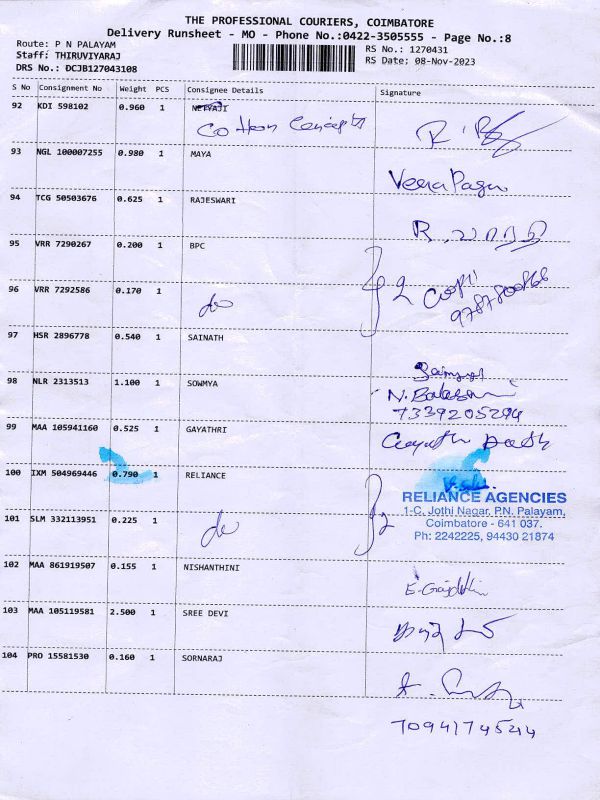 THE PROFESSIONAL COURIERS, COIMBATORE
Delivery Runsheet - MO - Phone No.:0422-3505555 - Page No.:8
Route: P N PALAYAM
Staff: THIRUVIYARAJ
DRS No.: DCJB127043108
RS No.: 1270431
RS Date: 08-Nov-2023
S No Consignment No Weight PCS Consignee Details Signature
92 KDI 598102 0.960 1
Cotton Concepts
93 NGL 100007255 0.980 1 MAYA
94 TCG 50503676 0.625 1 RAJESWARI
95 VRR 7290267 0.200 1 BPC
96 VRR 7292586 0.170 1 do
2
97 HSR 2896778 0.540 1 SAINATH
98 NLR 2313513 1.100 1 SOWMYA
7339205294
99 MAA 105941160 0.525 1 GAYATHRI
100 IXM 504969446 0.790 1 RELIANCE
RELIANCE AGENCIES
1-C, Jothi Nagar, P.N. Palayam,
Coimbatore - 641 037.
Ph: 2242225, 94430 21874
101 SLM 332113951 0.225 1 do
2
102 MAA 861919507 0.155 1 NISHANTHINI
103 MAA 105119581 2.500 1 SREE DEVI
104 PRO 15581530 0.160 1 SORNARAJ
7094174544